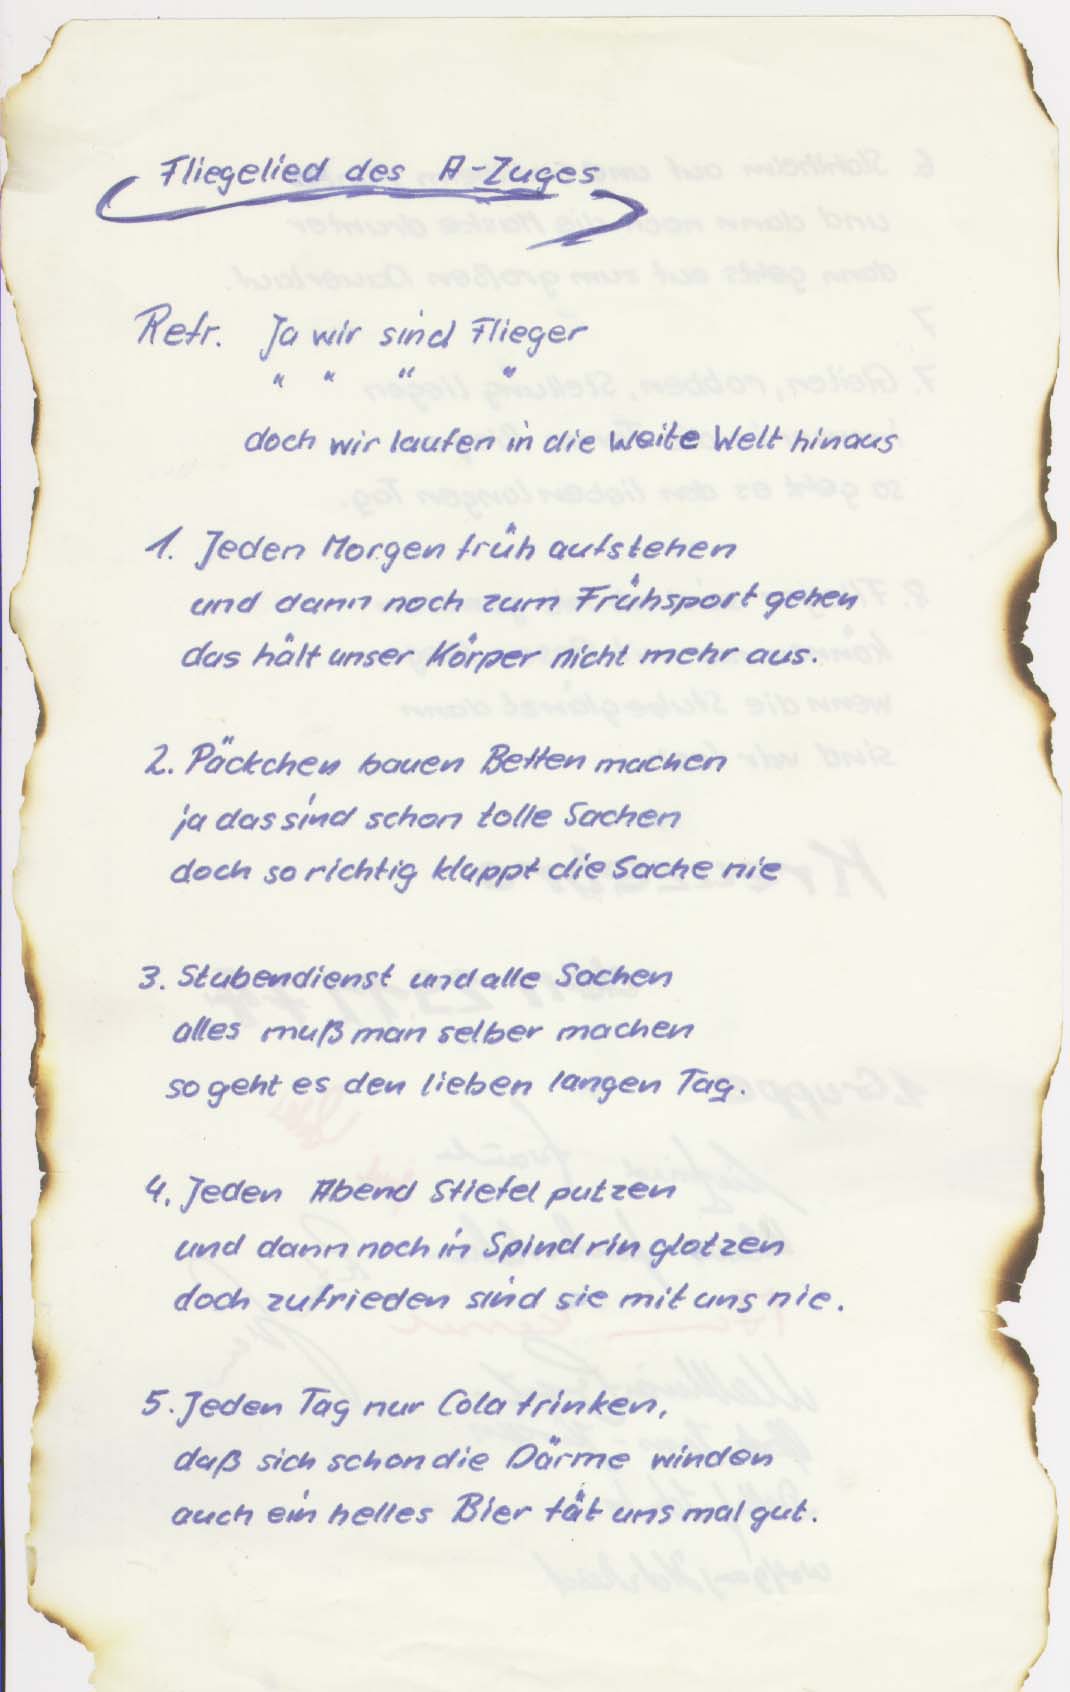 Fliegelied des A-Zuges
Refr. Ja wir sind Flieger
" " " "
doch wir laufen in die weite Welt hinaus
1. Jeden Morgen früh aufstehen
und dann noch zum Frühsport gehen
das hält unser Körper nicht mehr aus.
2. Päckchen bauen Betten machen
ja das sind schon tolle Sachen
doch so richtig klappt die Sache nie
3. Stubendienst und alle Sachen
alles muß man selber machen
so geht es den lieben langen Tag.
4. Jeden Abend Stiefel putzen
und dann noch in Spind rin glotzen
doch zufrieden sind sie mit uns nie.
5. Jeden Tag nur Cola trinken,
daß sich schon die Därme winden
auch ein helles Bier tät uns mal gut.